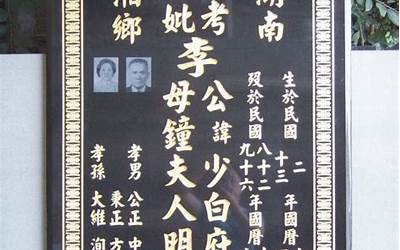 湖南
生於民國
二
十三
年國曆
歿於民國
八十二
九十六
年國曆
考
妣
李
公諱少白府
母鐘夫人明
湘鄉
孝男
公正
中
秉正
方
孝孫
大維
洵